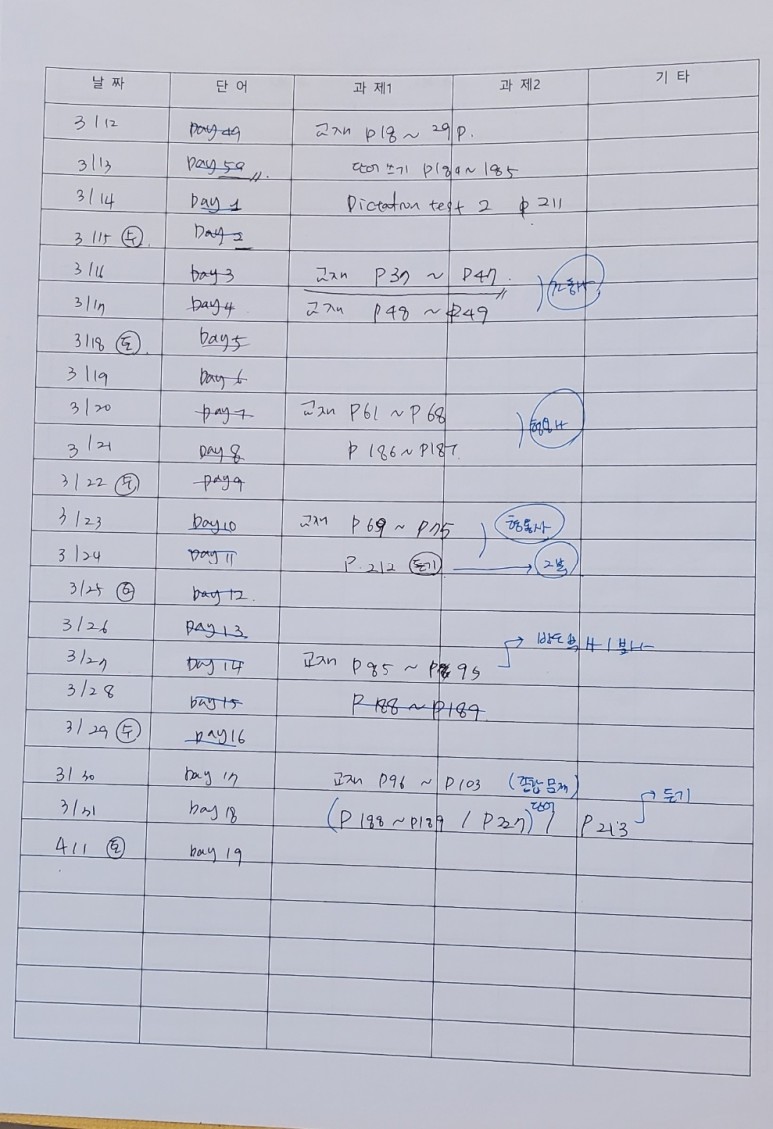 날 짜 단 어 과 제1 과 제2 기 타
3/12 Day 49 교재 p18 ~ 29p.
3/13 Day 50 단어 쓰기 p184 ~ 185
3/14 Day 1 Dictation test 2 p 211
3/15 Day 2
3/16 Day 3 교재 P37 ~ P47.
3/17 Day 4 교재 P48 ~ P49
3/18 토 Day 5
3/19 Day 6
3/20 Day 7 교재 P61 ~ P68
3/21 Day 8 P 186 ~ P187
3/22 Day 9
3/23 Day 10 교재 P69 ~ P75 형용사
3/24 Day 11 P.212 듣기 → 2번
3/25 Day 12
3/26 Day 13
3/27 Day 14 교재 P85 ~ P95
3/28 Day 15 P 188 ~ P189
3/29 Day 16
3/30 Day 17 교재 P96 ~ P103 (종합문제)
3/31 Day 18 (P 188 ~ P189 / P327) 단어 / P213 듣기
4/1 토 Day 19